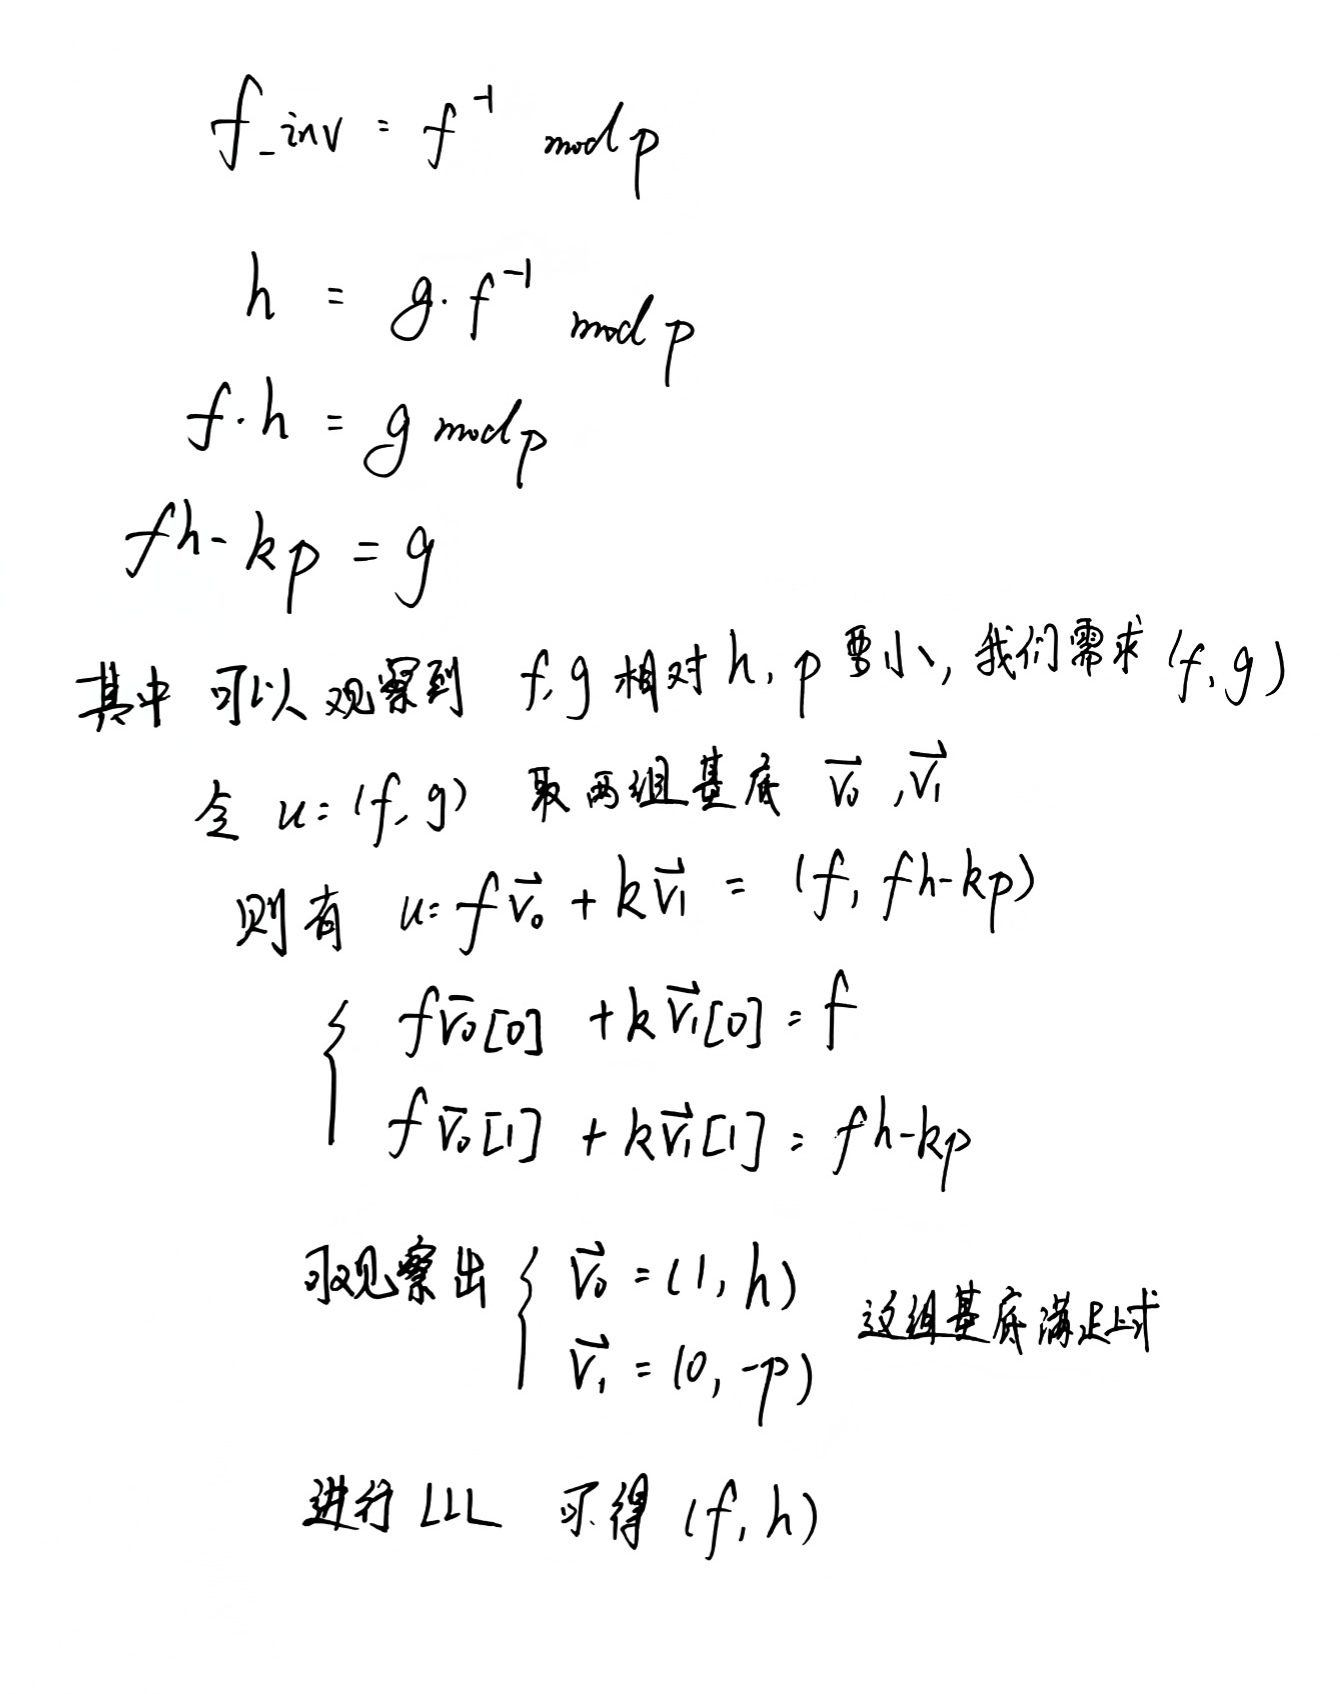 f_inv = f⁻¹ mod p
h = g·f⁻¹ mod p
f·h = g mod p
fh-kp = g
其中 可以观察到 f,g 相对 h, p 要小, 我们需求 (f, g)
令 u=(f,g) 取两组基底 v⃗₀,v⃗₁
则有 u=fv⃗₀+kv⃗₁ = (f, fh-kp)
{ fv⃗₀[0] +kv⃗₁[0]=f
fv⃗₀[1] +kv⃗₁[1]=fh-kp
可观察出 { v⃗₀=(1,h) 这组基底满足上式
v⃗₁=(0,-p)
进行LLL 可得 (f,h)